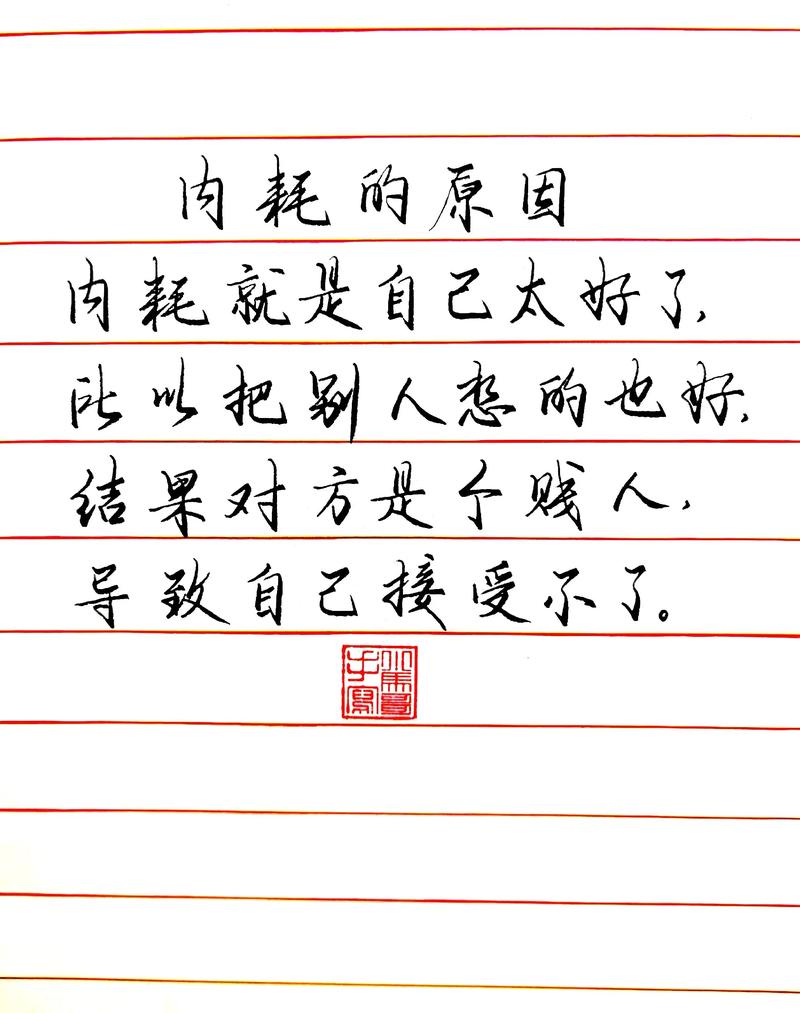 内耗的原因
内耗就是自己太好了,
所以把别人想的也好,
结果对方是个贱人,
导致自己接受不了。